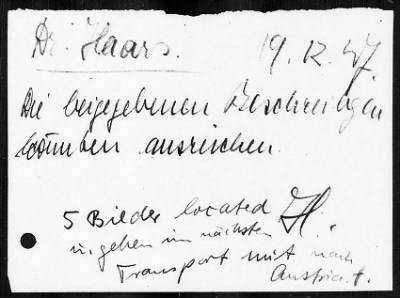 Dr. Haars. 19. 12. 47.
Die beigegebenen Beschreibungen
könnten ausreichen.
5 Bilder located H.
u. gehen im nächsten
Transport mit nach
Austria. t.